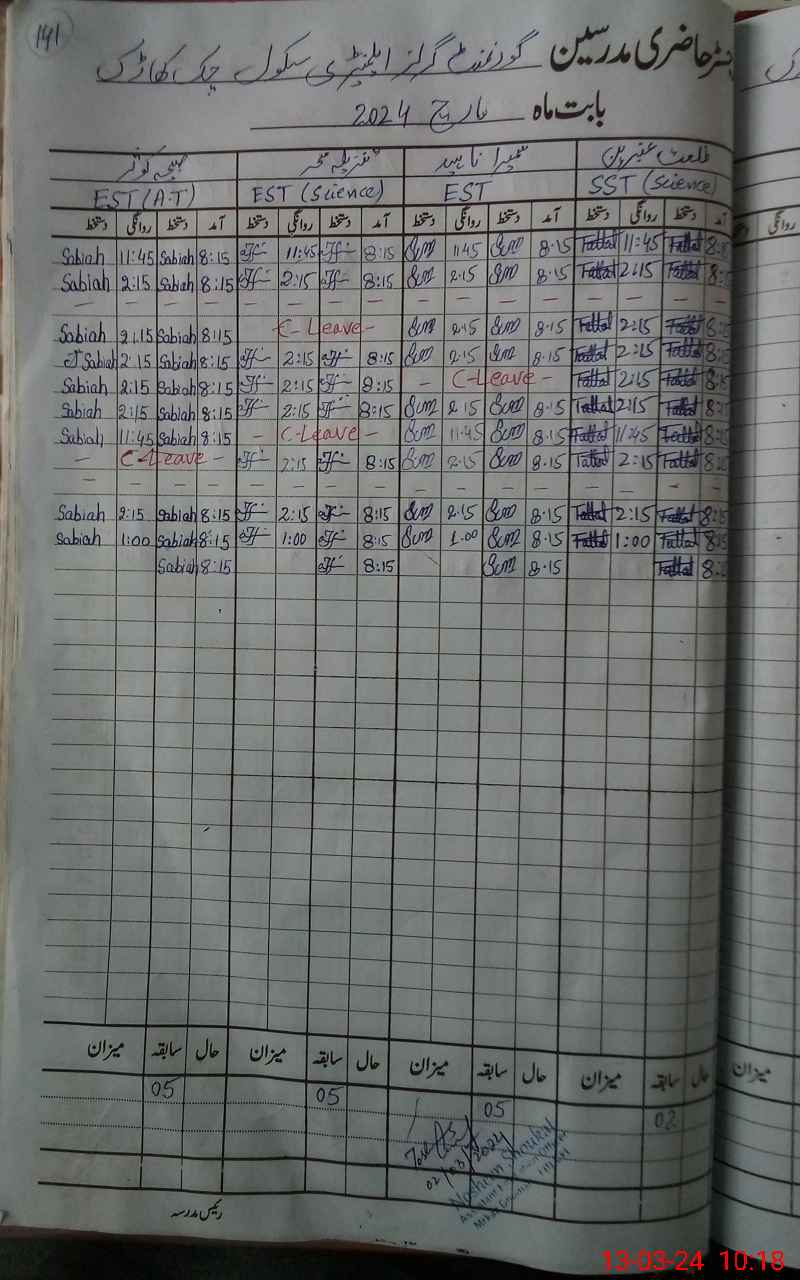 141
رجسٹر حاضری مدرسین گورنمنٹ گرلز ایلیمنٹری سکول چک
بابت ماہ مارچ 2024
طلعت عنبرین سمیرا ناہید سحر صبیحہ کوثر
SST (Science) EST EST (Science) EST (A.T)
آمد دستخط روانگی دستخط آمد دستخط روانگی دستخط آمد دستخط روانگی دستخط آمد دستخط روانگی دستخط
Sabiah 11:45 Sabiah 8:15 11:45 8:15 Sum 11.45 Sum 8.15 Tallat 11:45 Tallat 8:15
Sabiah 2:15 Sabiah 8:15 2:15 8:15 Sum 2.15 Sum 8.15 Tallat 2:15 Tallat 8:15
— — — — — — — — — — — — — — —
Sabiah 2:15 Sabiah 8:15 C-Leave- Sum 2.15 Sum 8.15 Tallat 2:15 Tallat 8:15
Sabiah 2:15 Sabiah 8:15 2:15 8:15 Sum 2.15 Sum 8.15 Tallat 2:15 Tallat 8:15
Sabiah 2:15 Sabiah 8:15 2:15 8:15 - C-Leave - Tallat 2:15 Tallat 8:15
Sabiah 2:15 Sabiah 8:15 2:15 8:15 Sum 2.15 Sum 8.15 Tallat 2:15 Tallat 8:15
Sabiah 11:45 Sabiah 8:15 - C-Leave - Sum 11.45 Sum 8.15 Tallat 11:45 Tallat 8:15
- C-Leave - 2:15 8:15 Sum 2.15 Sum 8.15 Tallat 2:15 Tallat 8:15
— — — — — — — — — — — — — — —
Sabiah 2:15 Sabiah 8:15 2:15 8:15 Sum 2.15 Sum 8.15 Tallat 2:15 Tallat 8:15
Sabiah 1:00 Sabiah 8:15 1:00 8:15 Sum 1.00 Sum 8.15 Tallat 1:00 Tallat 8:15
Sabiah 8:15 8:15 Sum 8.15 Tallat 8:
حال سابقہ میزان حال سابقہ میزان حال سابقہ میزان حال سابقہ میزان
05 05 05 02
02/03/2024
Nosheen Shoukat
Assistant
رئیس مدرسہ
روانگی
میزان
13-03-24 10.18